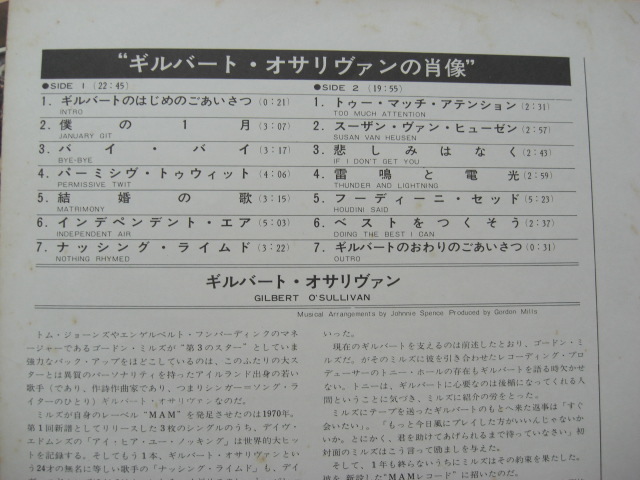 “ギルバート・オサリヴァンの肖像”
●SIDE 1 (22:45)
1. ギルバートのはじめのごあいさつ(0:21)
INTRO
2. 僕の1月(3:07)
JANUARY GIT
3. バイ・バイ(3:17)
BYE-BYE
4. パーミシヴ・トゥウィット(4:06)
PERMISSIVE TWIT
5. 結婚の歌(3:15)
MATRIMONY
6. インデペンデント・エア(5:03)
INDEPENDENT AIR
7. ナッシング・ライムド(3:22)
NOTHING RHYMED
●SIDE 2 (19:55)
1. トゥー・マッチ・アテンション(2:31)
TOO MUCH ATTENTION
2. スーザン・ヴァン・ヒューゼン(2:57)
SUSAN VAN HEUSEN
3. 悲しみはなく(2:43)
IF I DON'T GET YOU
4. 雷鳴と電光(2:59)
THUNDER AND LIGHTNING
5. フーディーニ・セッド(5:23)
HOUDINI SAID
6. ベストをつくそう(2:37)
DOING THE BEST I CAN
7. ギルバートのおわりのごあいさつ(0:31)
OUTRO
ギルバート・オサリヴァン
GILBERT O'SULLIVAN
Musical Arrangements by Johnnie Spence Produced by Gordon Mills
トム・ジョーンズやエンゲルベルト・フンパーディンクのマネ
ージャーであるゴードン・ミルズが“第3のスター”としていま
強力なバック・アップをほどこしているのは、このふたりの大ス
ターとは異質のパーソナリティを持ったアイルランド出身の若い
歌手(であり、作詩作曲家であり、つまりシンガー=ソング・ラ
イターのひとり)ギルバート・オサリヴァンなのだ。
ミルズが自身のレーベル“MAM”を発足させたのは1970年。
第1回新譜としてリリースした3枚のシングルのうち、デイヴ・
エドムンズの「アイ・ヒア・ユー・ノッキング」は世界的大ヒッ
トを記録する。そしてもう1本、ギルバート・オサリヴァンとい
う24才の無名に等しい歌手の「ナッシング・ライムド」も、デイ
いった。
現在のギルバートを支えるのは前述したとおり、ゴードン・ミ
ルズだ。がそのミルズに彼を引き合わせたレコーディング・プロ
デューサーのトニー・ホールの存在もギルバートを語る時欠かせ
ない。トニーは、ギルバートに心要なのは後楯になってくれる人
間ということに気づき、ミルズに紹介の労をとった。
ミルズにテープを送ったギルバートのもとへ来た返事は「すぐ
会いたい」。「もっと今日風にプレイした方がいいんじゃないか
いか。とにかく、君を助けてあげられるまで待っていなさい」初
対面のミルズはこう言って励ましを与えた。
そして、1年も終らないうちにミルズはその約束を果たした。
彼を新設した“MAMレコード”に招いたのだ。